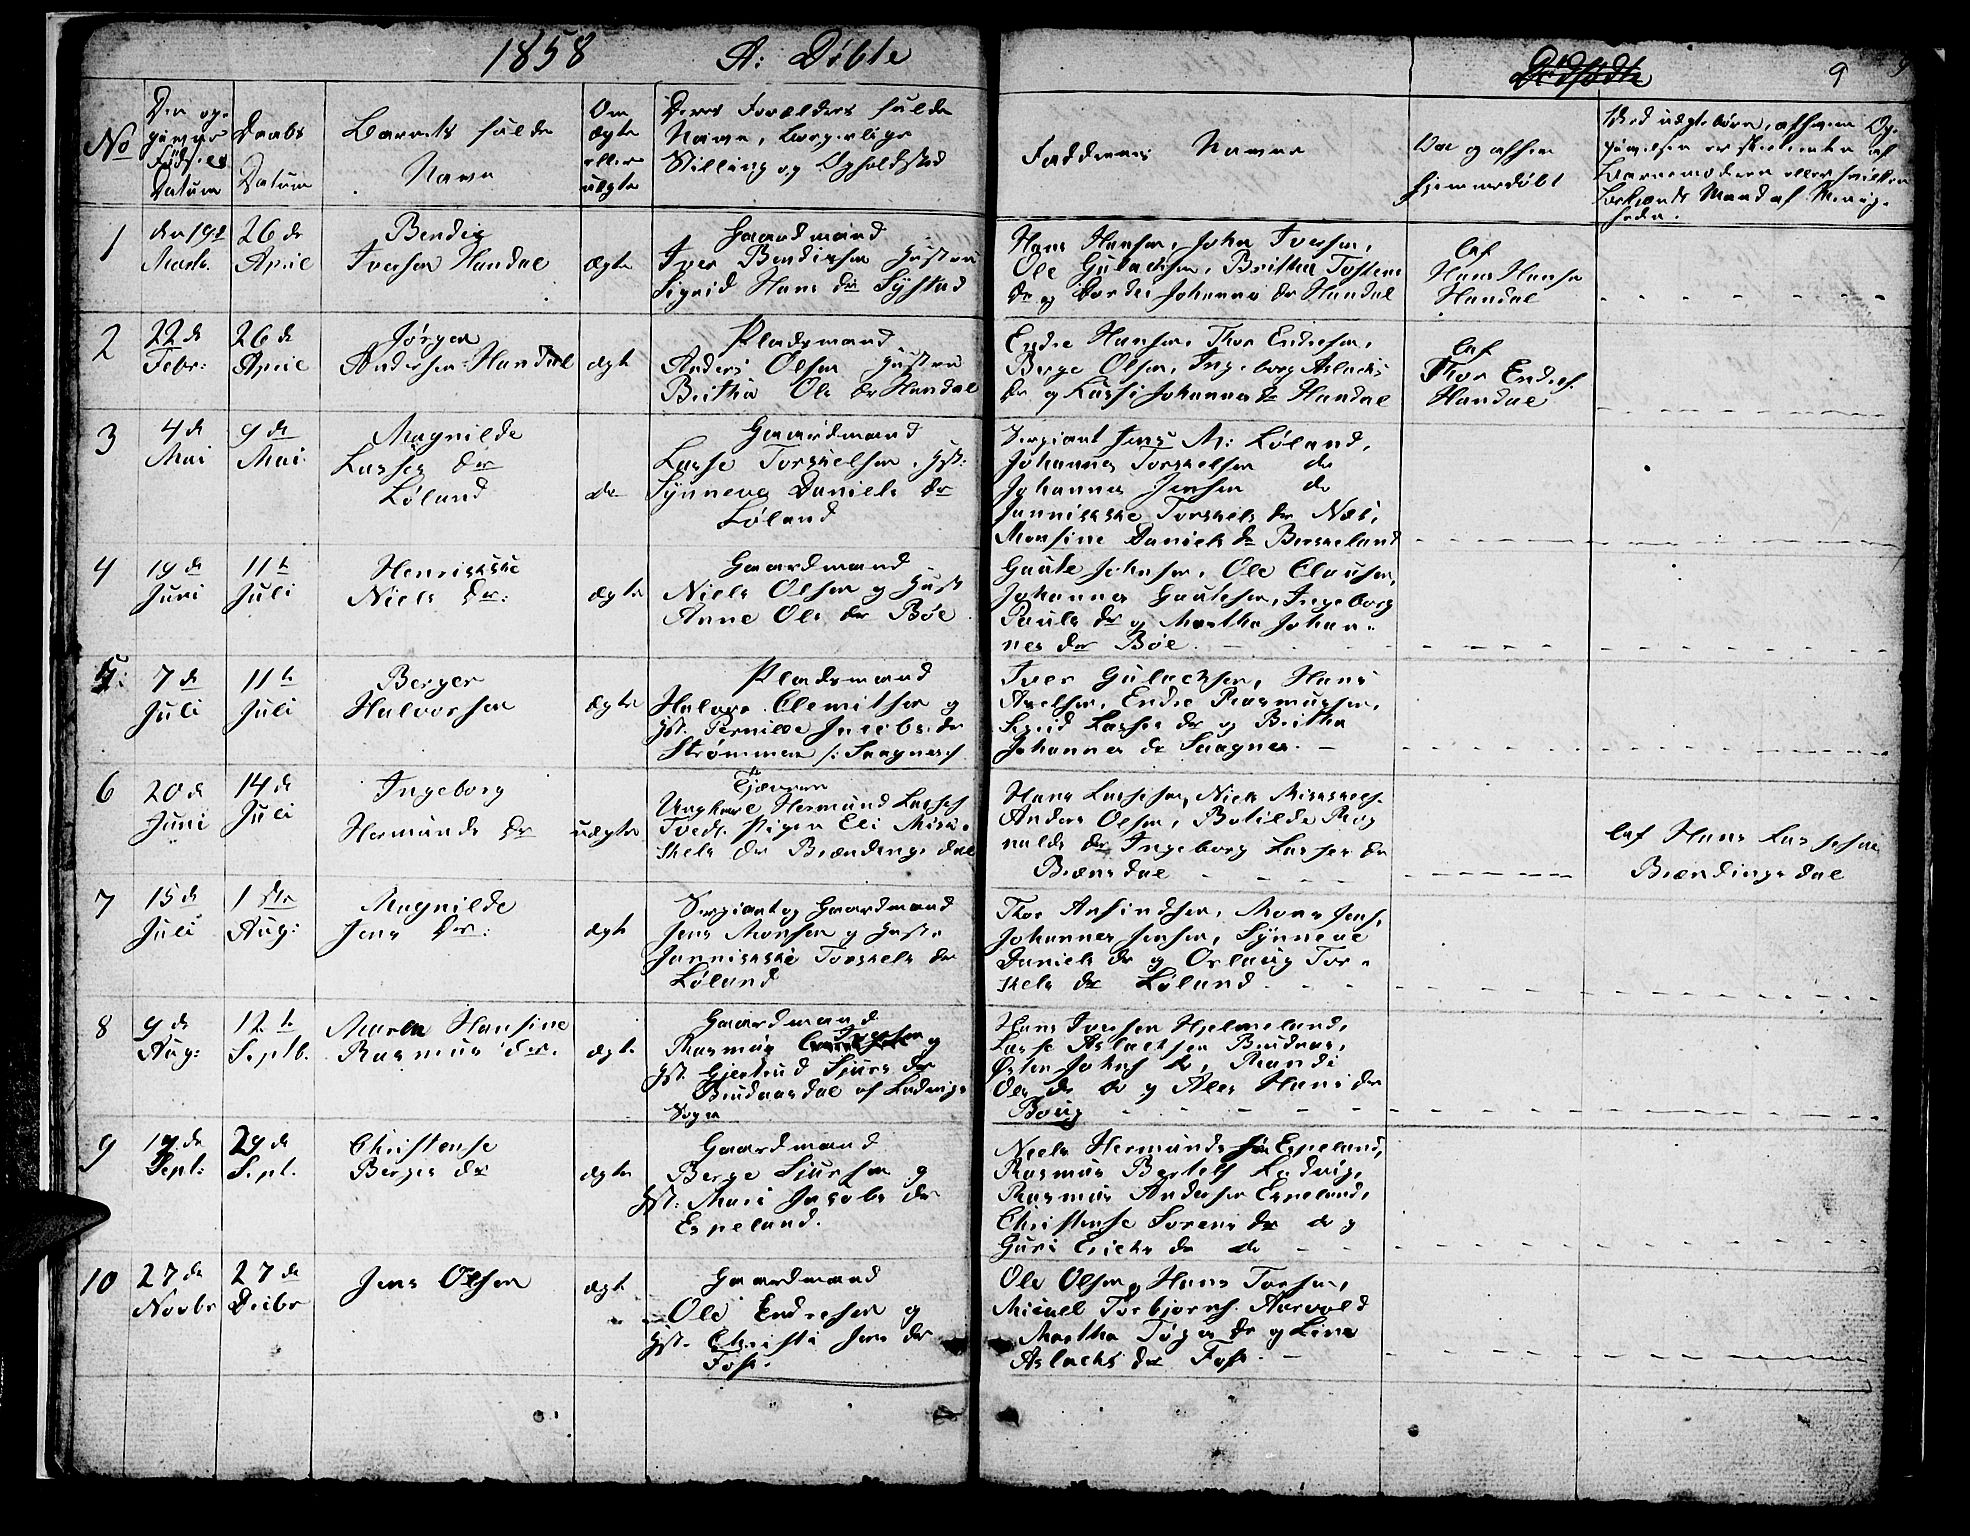 1858 A: Døbte
Dødfødte
9
No
Den op-
givne
Fødsels
Datum
Daabs
Datum
Barnets fulde
Navn
Om
ægte
eller
uægte
Deres Forældres fulde
Navne, borgerlige
Stilling og Opholdsted
Faddernes Navne
hjemmedøbt
1
den 19de
Marts.
26 de
April
Bendix
Iversen Handal
ægte
Gaardmand
Iver Bendixen Hustru
Sigrid Hans dr Systad
Hans Hansen, John Iversen,
Ole Gulachsen, Britha Tostens
dr og Johanne dr Handal
af
Hans Hansen
Handal
2
22 de
Febr:
26 de
April
Jørgen
Andersen Handal
ægte
Pladsmand
Anders Olsen Hustru
Britha Ols dr Handal
Endre Hansen, Thor Endresen,
Berge Olsen, Ingeborg Aslachs
dr og Johannes dr Handal
af
Thor Endres.
Handal
3
4 de
Mai
9 de
Mai
Magnilde
Lasses dr
Løland
do
Gaardmand
Lasse Torkelsen, Hst:
Synneve Daniels dr
Løland
Sergiant Jens M: Løland,
Johannes Torkelsen do
Johannes Jensen do
Jannikke Torkels dr Næs,
Monsine Daniels dr Birkeland
4
19 de
Juni
11 te
Juli
Henrikke
Niels dr:
ægte
Gaardmand
Niels Olsen og Hust
Anne Ols dr Bøe
Gaute Johnsen, Ole Clausen,
Johannes Gautesen, Ingeborg
Pauls dr og Martha Johan-
nes dr Bøe
5:
7 de
Juli
11 te
Juli
Berger
Halvorsen
ægte
Pladsmand
Halvor Clemitsen og
Hst. Pernille Jacobs dr
Strømmen /: Saagnes:/
Iver Gulachsen, Hans
Axelsen, Endre Rasmussen,
Sigrid Lasses dr og Britha
Johannes dr Saagnes.
6
20 de
Juni
14 de
Juli
Ingeborg
Hermunds dr
uægte
Tjænere
Ungkarl Hermund Lasses.
Tvedt. Pigen Eli Mikk-
kels dr Brændingsdal
Hans Lassesen, Niels Mikkels.
Anders Olsen, Botilde Rog
nalds dr Ingeborg Lasses dr
Brænsdal
af Hans Lassesen
Brændingsdal
7
15 de
Juli
1 ste
Aug:
Magnilde
Jens dr:
ægte
Sergiant og Gaardmand
Jens Monsen og Hustr
Jannikke Torkels dr
Løland
Thor Amindsen, Mons Jens.
Johannes Jensen, Synneve
Daniels dr og Oslaug Tor-
kels dr Løland
8
9 de
Aug:
12 te
Septb.
Maren Hansine
Rasmus dr.
ægte
Gaardmand
Rasmus Iversen og
Hst. Gjertrud Sjurs dr
af Ladvigs
Sogn
Hans Iversen Hjelmeland,
Lasse Aslachsen
Østen Johns do, Randi
Ols dr do og Ales Hans dr
Boug
9
19 de
Sept:
29 de
Sept.
Christense
Berges dr
ægte
Gaardmand
Berge Sjursen og
Hst: Mari Jacobs dr
Espeland.
Niels Hermundsen Espeland,
Rasmus Bertels. Ladvig,
Rasmus Andersen Espeland,
Christense Sorens dr do og
Guri Erichs dr do
10
27 de
Novbr
27 de
Decbr
Jens Olsen
ægte
Gaardmand
Ole Endresen og
Hst. Christi Jens dr
Foss.
Ole Olsen, Hans Torsen,
Michel Torbjørns. Aarvold
Martha Tøges dr og Line
Aslachs dr Foss.